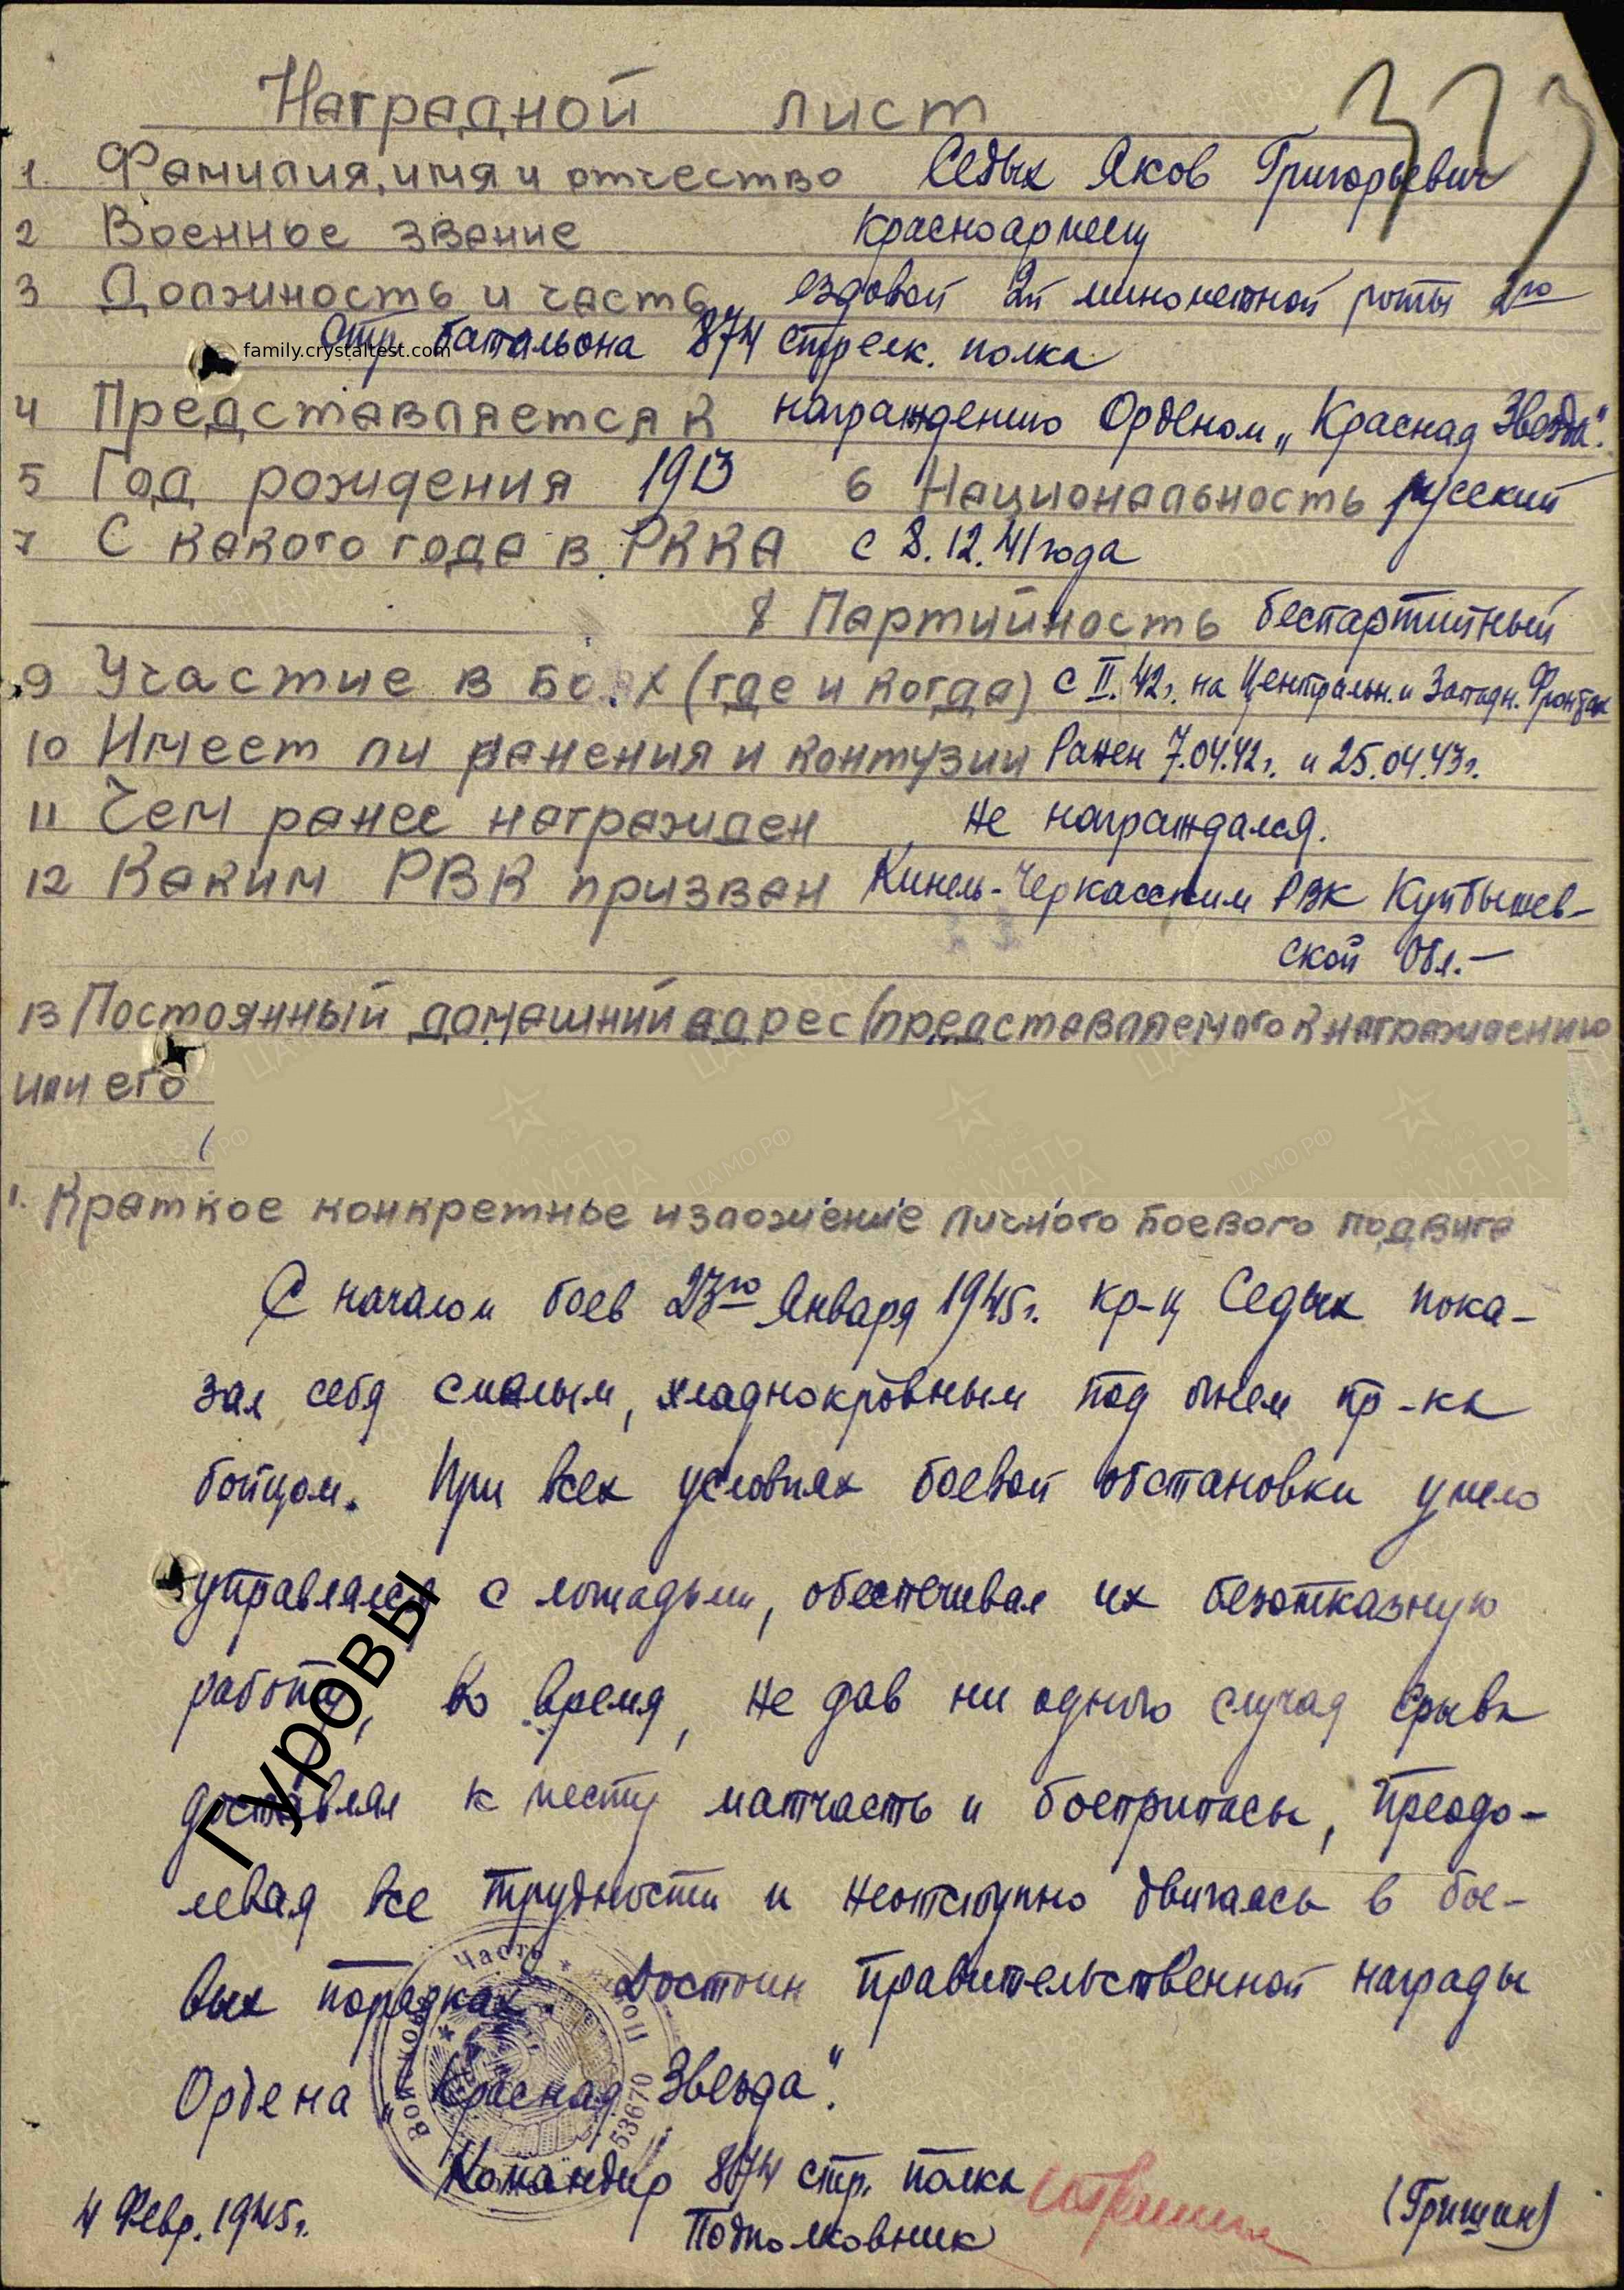 373
Наградной лист
1. Фамилия, имя и отчество Седых Яков Григорьевич
2 Военное звание красноармеец
3 Должность и часть ездовой 2й минометной роты 2го
стр. батальона 874 стрелк. полка
family.crystaltest.com
4 Представляется к награждению Орденом „Красная Звезда".
5 Год рождения 1913 6 Национальность русский
7 С какого года в РККА с 8.12.41 года
8 Партийность беспартийный
9 Участие в Боях (где и когда) с II.42г. на Центральн. и Западн. Фронтах
10 Имеет ли ранения и контузии Ранен 7.04.42г. и 25.04.43г.
11 Чем ранее награжден Не награждался.
12 Каким РВК призван Кинель-Черкасским РВК Куйбышев-
ской Обл.-
13 Постоянный домашний адрес (представляемого к награждению
или его
1. Краткое конкретное изложение личного Боевого подвига
С началом боев 23го Января 1945г. кр-ц Седых пока-
зал себя смелым, хладнокровным под огнем пр-ка
бойцом. При всех условиях боевой обстановки умело
управлялся с лошадьми, обеспечивая их безотказную
работу, во время, не дав ни одного случая срыва
доставлял к месту матчасть и боеприпасы, преодо-
левая все трудности и неотступно двигаясь в бое-
вых порядках. Достоин правительственной награды
Ордена „Красная Звезда".
Гуровы
Войсковая Часть Полевая 53670
Командир 874 стр. полка
Подполковник (Гришин)
4 Февр. 1945г.